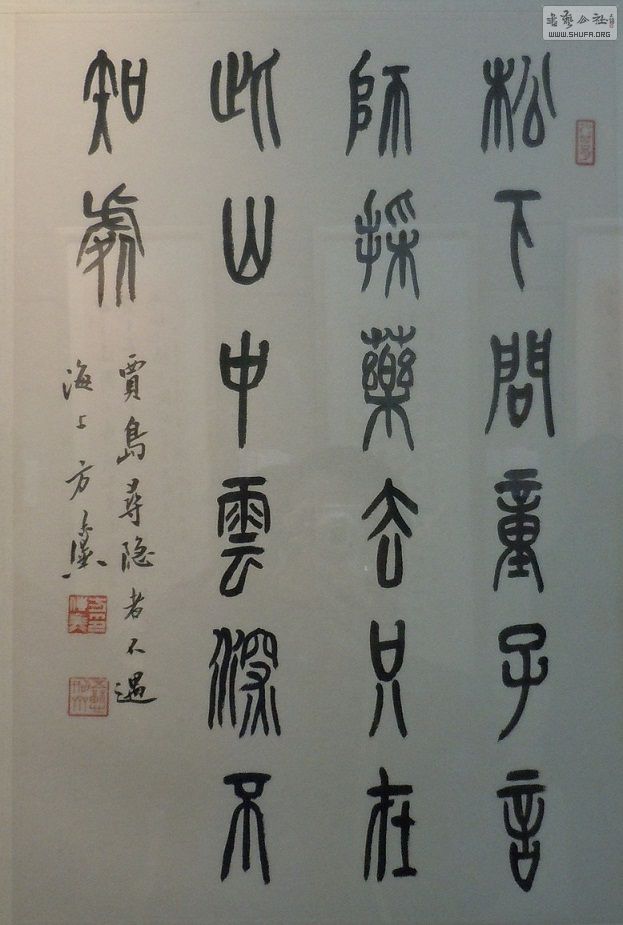 松下問童子言
師採藥去只在
此山中雲深不
知處
賈島尋隐者不遇
海上方
WWW.SHUFA.ORG